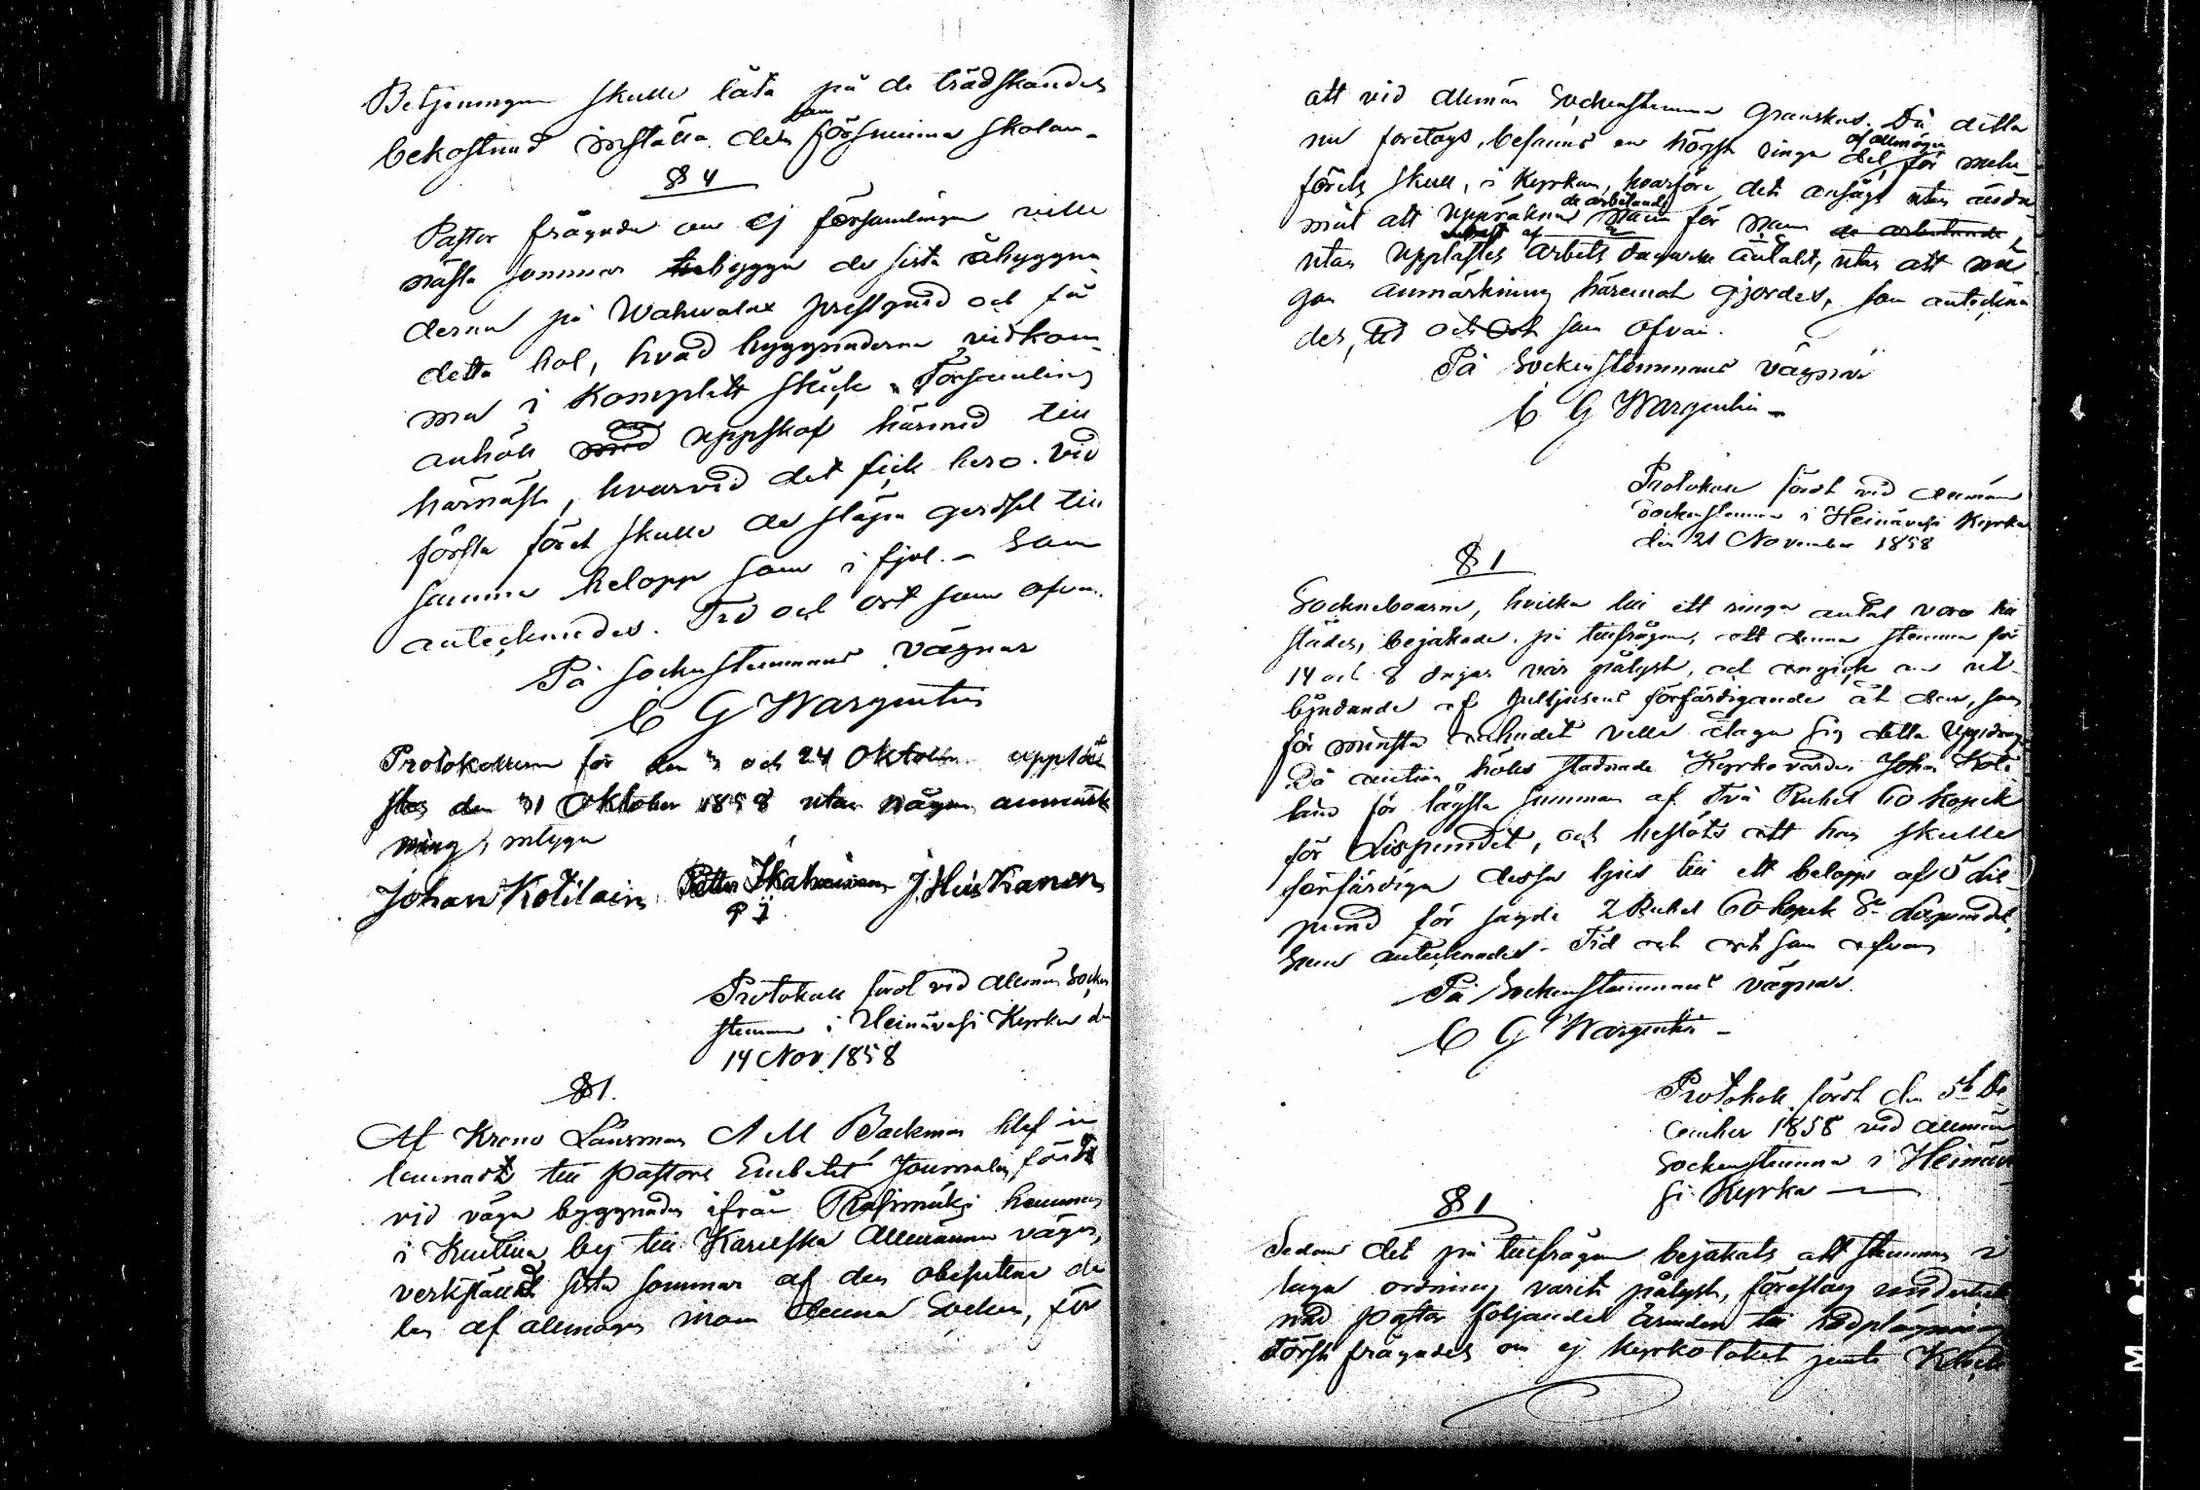 Betjeningen skulle låta på de trädskandes
bekostnad inställa dem som försumma skolan.
§ 4
Pastor frågade om ej församlingen ville
nästa sommar bebygga de sista åbyggna-
derna på Wahvalax prestgård och få
detta bol, hvad byggnaderna vidkom-
ma i komplett skick. Församling
anhöll om uppskof härmed till
härnäst, hvarvid det fick bero. Vid
första föret skulle de slägen gerdsel till
samma belopp som i fjol. - Som
antecknades. Tid och ort som ofvan.
På Sockenstemmans vägnar
C G Wargentin
Protokollerna för den 3 och 24 Oktober upplä-
stes den 31 Oktober 1858 utan någon anmärk
ning, intyga
Johan Kotilain Petter Ikäheimonen J. Heiskanen
Protokoll fördt vid allmän Socken
stemma i Heinävesi Kyrka den
14 Nov. 1858
§ 1.
Af Krono Länsman A M Backman blef in
lemnadt till Pastors Embetet Journalen, förd
vid väga byggnaden ifrån hemman
i by till Karvelska Allmänna vägen,
verkstäld sista sommar af den obesuttna de
len af allmogen inom denna Socken, för
att vid allmän Sockenstemma granskas. Då detta
nu foretogs, befanns en högst ringa del af allmogen, för mehn-
förets skull, i Kyrkan, hvarföre det ansågs utan ända-
mål att uppräkna de arbetande man för man de arbetande
utan upplästes af arbets dagarne antalet, utan att nå
gon anmärkning häremot gjordes, som anteckna
des, tid och ort som ofvan.
På Sockenstemmans vägnar
C G Wargentin -
Protokoll fördt vid allmän
Sockenstemma i Heinävesi Kyrka
den 21 November 1858
§ 1
Sockneboarne, hvilka till ett ringa antal voro till
städes, bejakade på tillfrågan, att denna stemma för
14 och 8 dagar var pålyst, och angick nu ut-
bjudande af Julljusens förfärdigande åt den, som
för minsta anbudet ville åtaga sig detta uppdrag.
Då auction hölls stadnade Kyrkovärden Johan Koti
lain för lägsta summan af Två Rubel 60 kopek
för Lispundet, och beslöts att han skulle
förfärdiga dessa ljus till ett belopp af 5 Lis-
pund för sagde 2 Rubel 60 kopek Lispundet,
Som antecknades. Tid och ort som ofvan
På Sockenstemmans vägnar.
C G Wargentin -
Protokoll fördt den 5te De
cember 1858 vid allmän
Sockenstemma i Heinäve
si Kyrka —
§ 1
Sedan det på tillfrågan bejakats att stemman i
laga ordning varit pålyst, föreslog underteck
nad Pastor följande ärenden till rådplägning
Först frågades om ej kyrkotaket jemte Klock